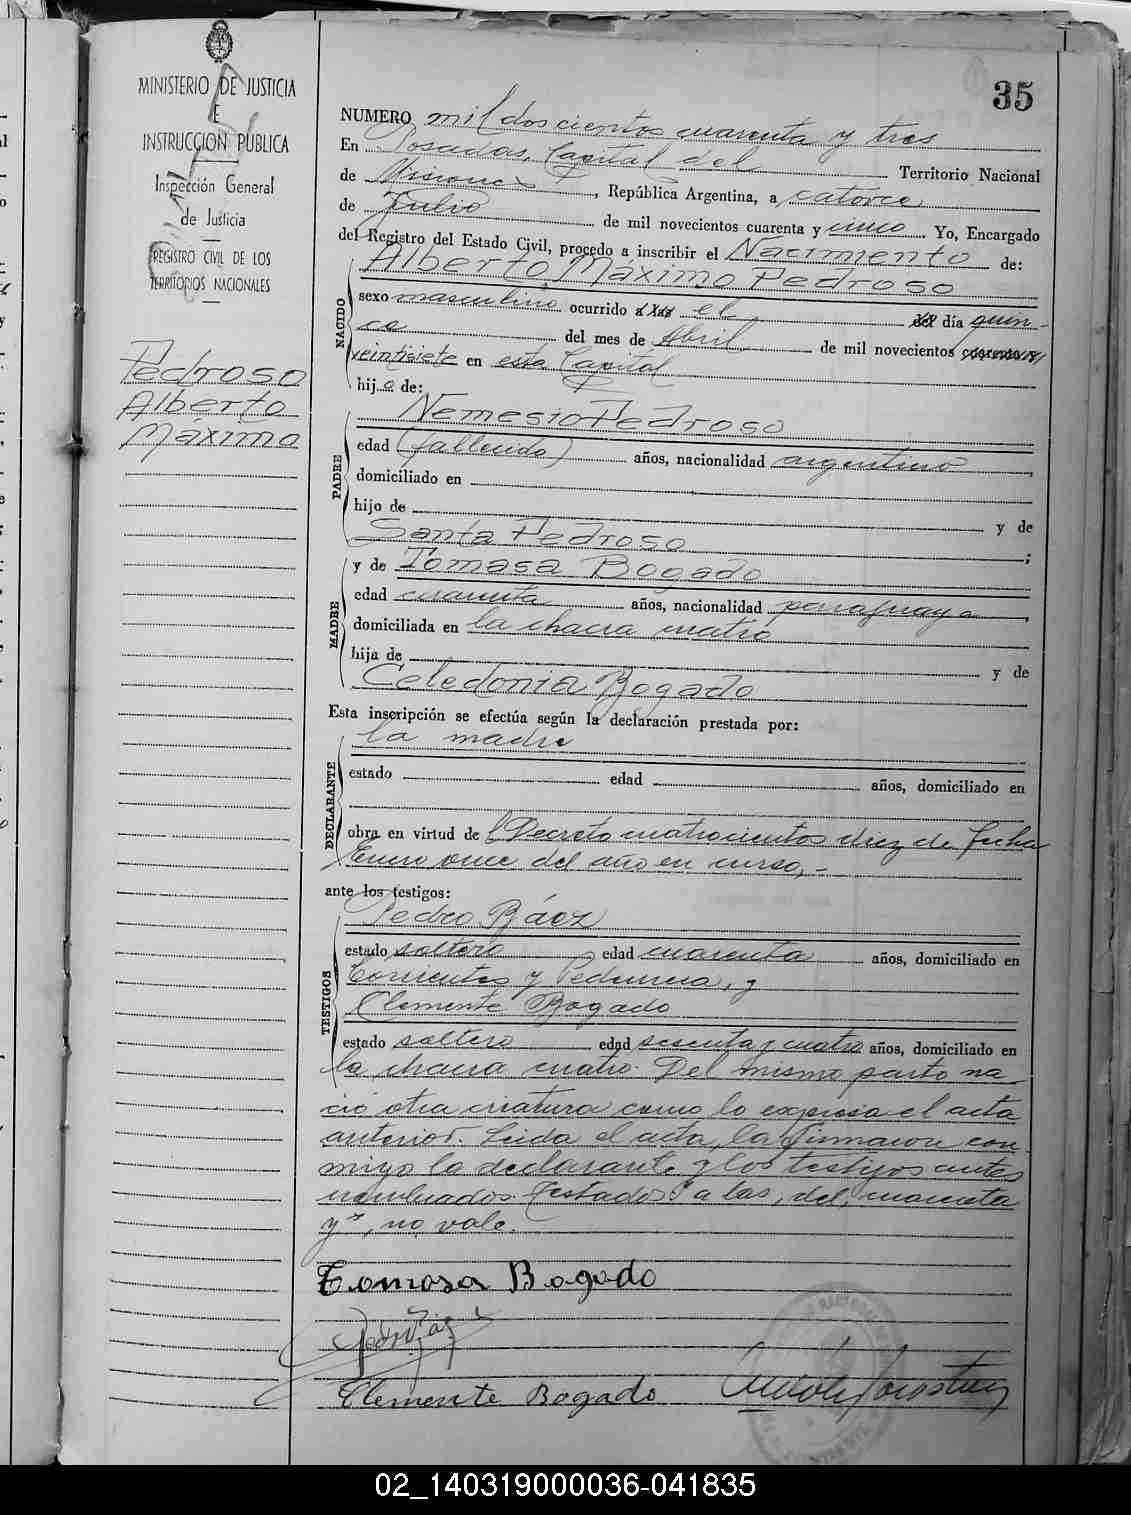 35
MINISTERIO DE JUSTICIA
E
INSTRUCCION PUBLICA
Inspección General
de Justicia
REGISTRO CIVIL DE LOS
TERRITORIOS NACIONALES
Pedroso
Alberto
Máximo
NUMERO mil doscientos cuarenta y tres
En Posadas, Capital del Territorio Nacional
de Misiones, República Argentina, a catorce
de Julio de mil novecientos cuarenta y cinco Yo, Encargado
del Registro del Estado Civil, procedo a inscribir el Nacimiento de:
Alberto Máximo Pedroso
NACIDO
sexo masculino ocurrido a las el del día quin-
ce del mes de Abril de mil novecientos cuarenta y
veintisiete en esta Capital
hijo de:
Nemesio Pedroso
PADRE
edad (fallecido) años, nacionalidad argentino,
domiciliado en
hijo de y de
Santa Pedroso;
y de Tomasa Bogado
MADRE
edad cuarenta años, nacionalidad paraguaya,
domiciliada en la chacra cuatro
hija de y de
Celedonia Bogado
Esta inscripción se efectúa según la declaración prestada por:
la madre
DECLARANTE
estado edad años, domiciliado en
obra en virtud del Decreto cuatrocientos diez de fecha
Enero once del año en curso,-
ante los testigos:
Pedro Báez
TESTIGOS
estado soltero edad cuarenta años, domiciliado en
Corrientes y Pedernera, y
Clemente Bogado
estado soltero edad sesenta y cuatro años, domiciliado en
la chacra cuatro. Del mismo parto na-
ció otra criatura como lo expresa el acta
anterior. Leida el acta, la firmaron con
migo la declarante y los testigos antes
nombrados. Testados "a las, del, cuarenta
y", no vale.
Tomasa Bogado
Clemente Bogado
02_140319000036-041835